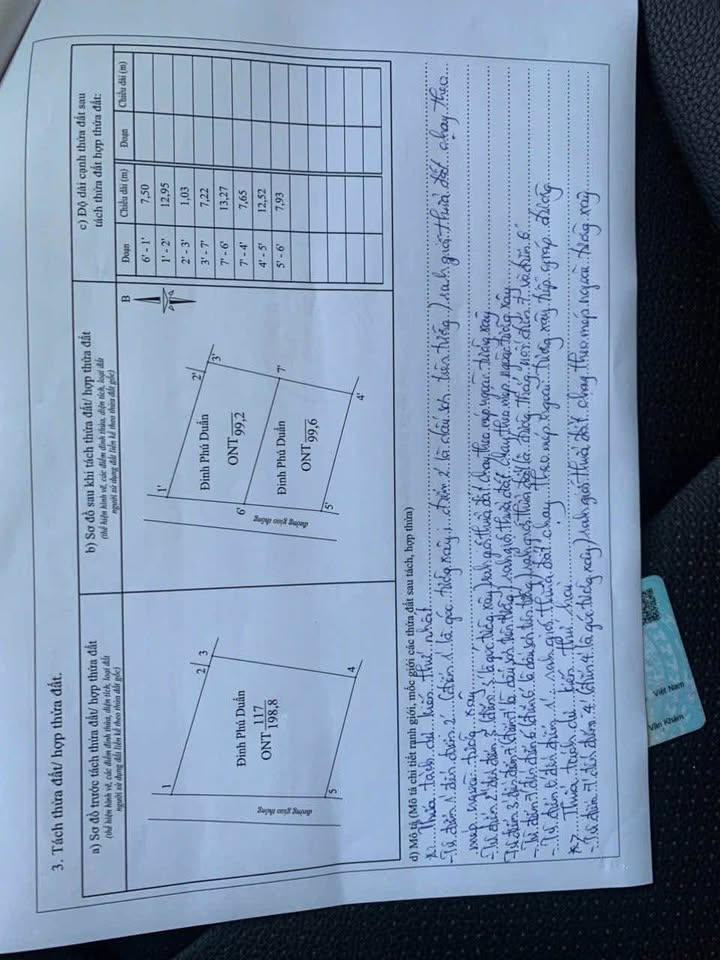 3. Tách thửa đất/ hợp thửa đất.
a) Sơ đồ trước tách thửa đất/ hợp thửa đất
(thể hiện hình vẽ, các điểm đỉnh thửa, diện tích, loại đất
người sử dụng đất liền kề theo thửa đất gốc)
1
2
3
4
5
Đinh Phú Duẩn
ONT 117
198,8
đường giao thông
b) Sơ đồ sau khi tách thửa đất/ hợp thửa đất
(thể hiện hình vẽ, các điểm đỉnh thửa, diện tích, loại đất
người sử dụng đất liền kề theo thửa đất gốc)
B
1'
2'
3'
Đinh Phú Duẩn
ONT 99,2
6'
7'
Đinh Phú Duẩn
ONT 99,6
5'
4'
đường giao thông
c) Độ dài cạnh thửa đất sau
tách thửa đất hợp thửa đất:
Đoạn Chiều dài (m) Đoạn Chiều dài (m)
6' - 1' 7,50
1' - 2' 12,95
2' - 3' 1,03
3' - 7' 7,22
7' - 6' 13,27
7' - 4' 7,65
4' - 5' 12,52
5' - 6' 7,93
d) Mô tả (Mô tả chi tiết ranh giới, mốc giới các thửa đất sau tách, hợp thửa)
Thửa tách dự kiến thứ nhất
- Từ điểm 1' đến điểm 2' (điểm 1' là góc tường xây, điểm 2' là dấu sơn trên tường) ranh giới thửa đất chạy theo
mép ngoài tường xây
- Từ điểm 2' đến điểm 3' là góc tường xây) ranh giới thửa đất chạy theo mép ngoài tường xây
Từ điểm 3' đến điểm 7' (điểm 7' là dấu sơn trên tường) ranh giới thửa đất chạy theo mép ngoài tường xây
- Từ điểm 7' đến điểm 6' (điểm 6' là dấu sơn trên tường) ranh giới thửa đất là đường thẳng nối điểm 7' và điểm 6'
- Từ điểm 6' đến điểm 1' ranh giới thửa đất chạy theo mép ngoài tường xây tiếp giáp đường
Thửa tách dự kiến thứ hai
- Từ điểm 7' đến điểm 4' (điểm 4' là góc tường xây) ranh giới thửa đất chạy theo mép ngoài tường xây
Việt Nam
Văn Khâm